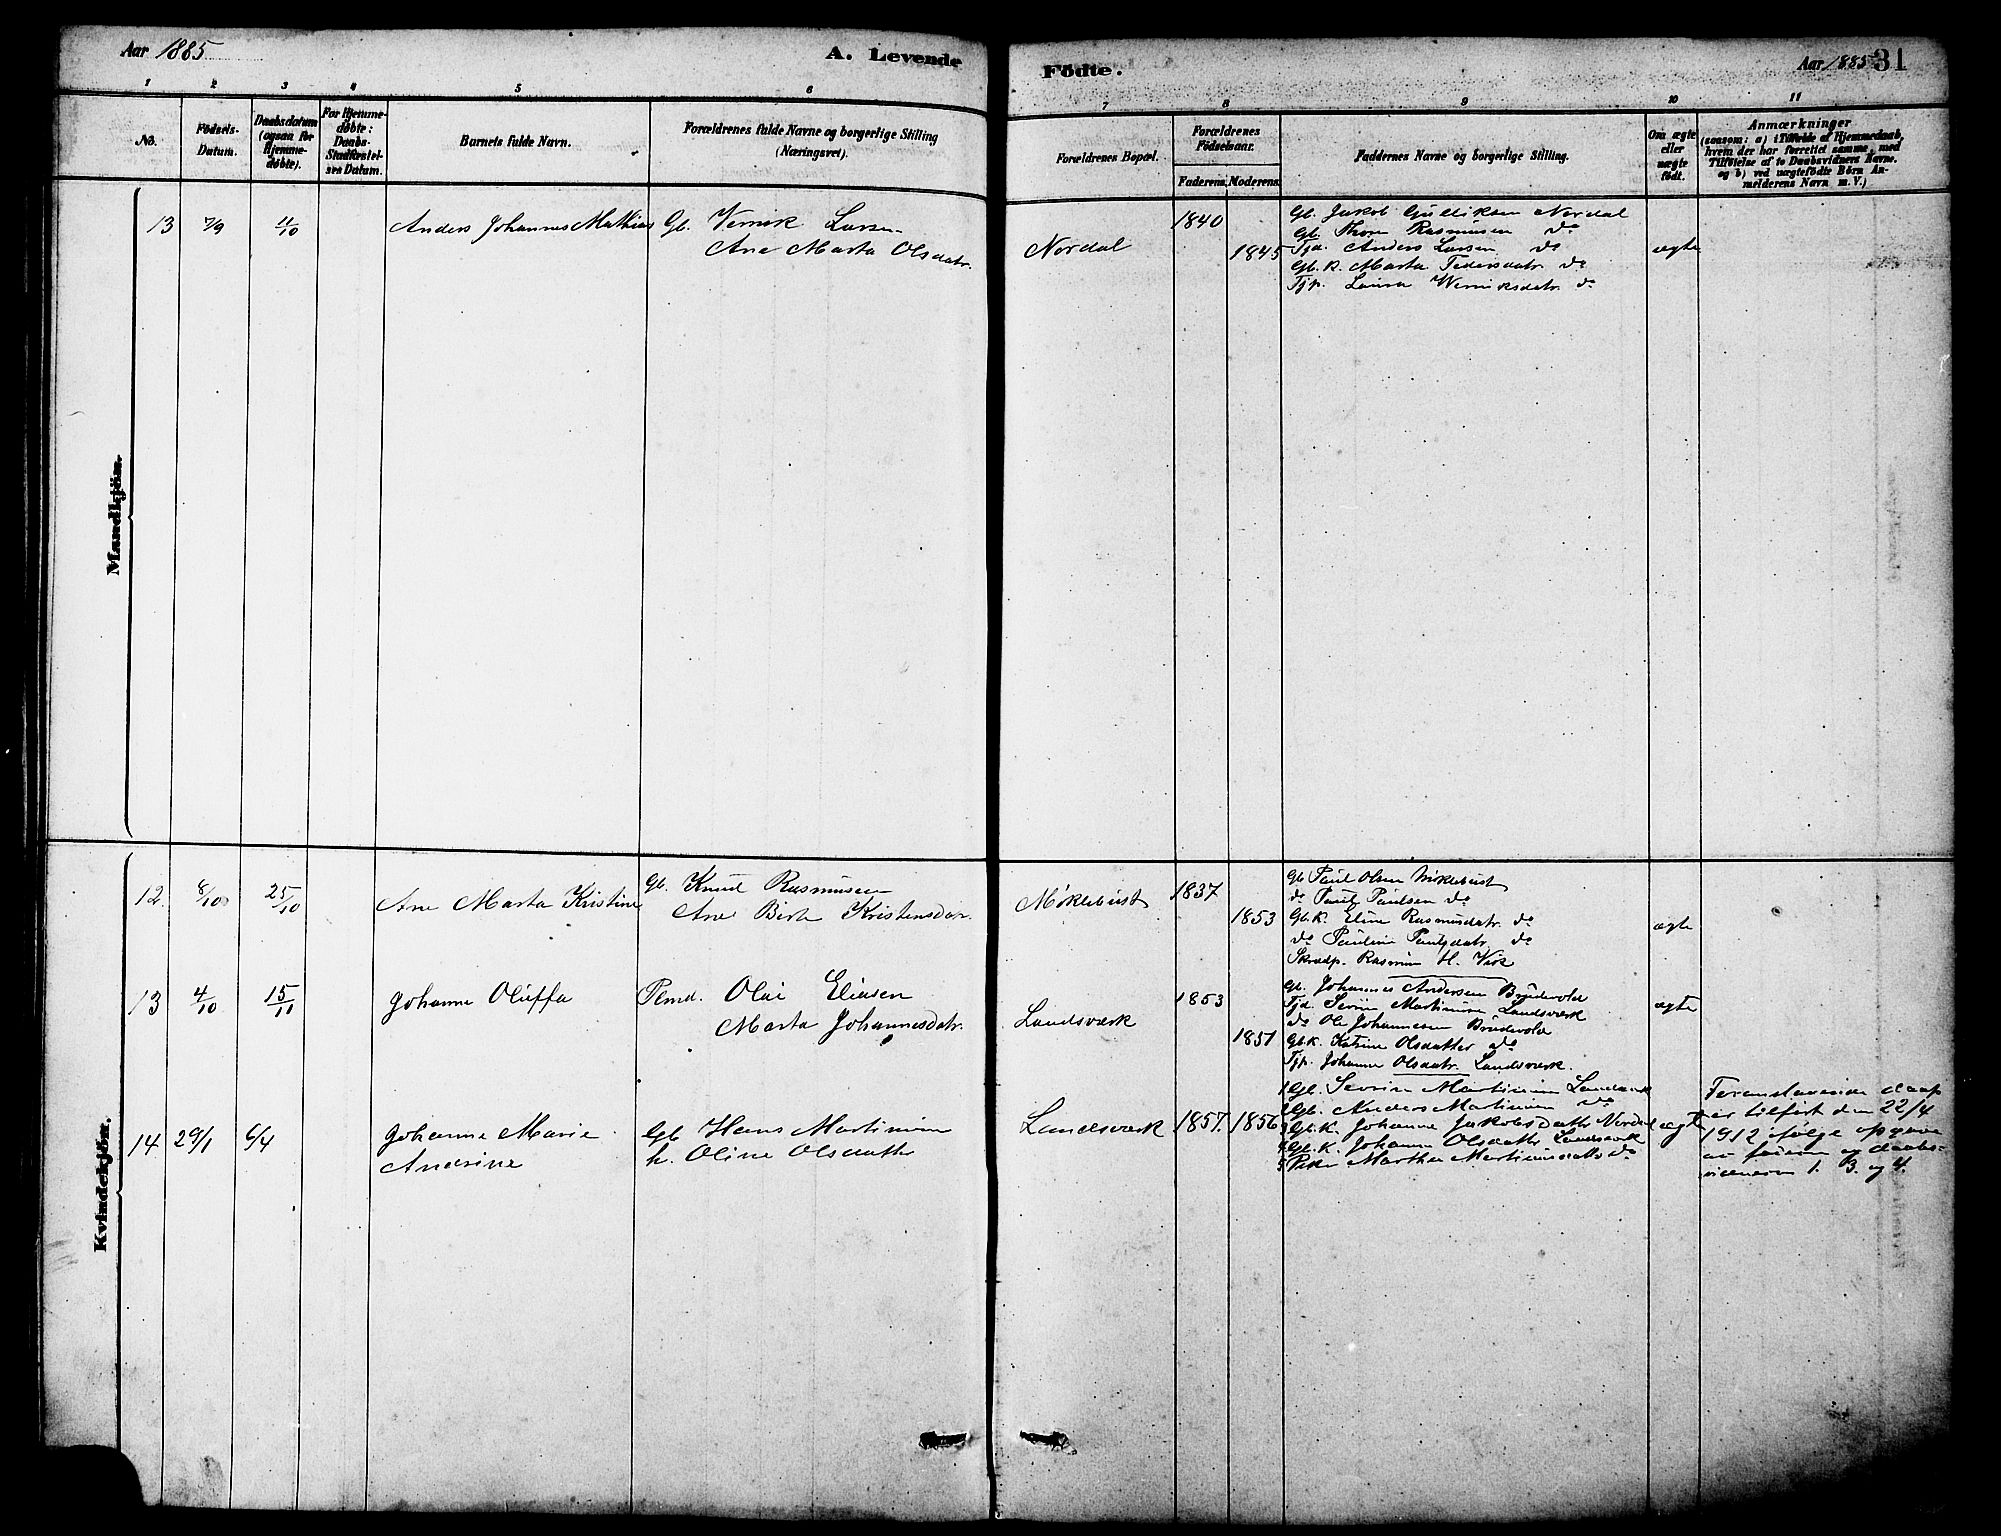 Aar 1885
A. Levende
Födte.
Aar 1885
31
1 2 3 4 5 6 7 8 9 10 11
No.
Födsels-
Datum.
Daabsdatum
(ogsaa for
Hjemme-
döbte).
For Hjemme-
döbte:
Daabs-
Stadfæstel-
ses Datum.
Barnets fulde Navn.
Forældrenes fulde Navne og borgerlige Stilling
(Næringsvei).
Forældrenes Bopæl.
Forældrenes
Födselsaar.
Faderens. Moderens.
Faddernes Navne og borgerlige Stilling.
Om ægte
eller
uægte
födt.
Anmærkninger
(saasom: a) i Tilfælde af Hjemmedaab,
hvem der har forrettet samme, med
Tilföielse af to Daabsvidners Navne.
og b) ved uægtefödte Börn An-
melderens Navn m. V.)
Mandkjön.
13 7/9 11/10 Anders Johannes Mathias
Gb. Larsen
Ane Marta Olsdatr.
Nordal
1840
1845
Gb. Jakob Gulliksen Nordal
Gb. Thore Rasmusen do
Tjd. Anders Larsen do
Gb. k. Marta Pedersdatr. do
Tjp. Laura do
ægte
Kvindekjön.
12. 8/10 25/10 Ane Marta Kristine
Gb. Knud Rasmusen
Ane Birte Kristensdatr.
Møklebust
1837
1853
Gb. Paul Olsen Møklebust
do Paul Paulsen do
Gb. K. Eline Rasmusdatr. do
do Pauline Paulsdatr. do
Rasmus H.
ægte
13 4/10 15/11 Johanne Oluffa
Plmd. Olai Eliasen
Marta Johannesdatr.
Landsværk
1853
1851
Gb. Johannes Andersen Brudevold
Tjd. Sevrin Martinusen Landsværk
do Ole Johannesen Brudevold
Gb. K. Katrine Olsdatter do
Tjp. Johanne Olsdatr. Landsværk.
ægte
14 29/1 6/4 Johanne Marie
Andrine
Gb Hans Martinusen
h. Oline Olsdatter
Landsværk
1857. 1856
1 Gb. Sevrin Martinusen Landsværk
2 Gb. Anders Martinusen do
3 Gb. K. Johanne Jakobsdatter Nordal
4 Gb. K. Johanne Olsdatter Landsværk
5 Pike Marthe Martinusdatter do
ægte
Foranstaaende daap
er tilført den 22/4
1912 ifølge opgave
av faderen og daabs-
vidnerne 1. 3. og 4.